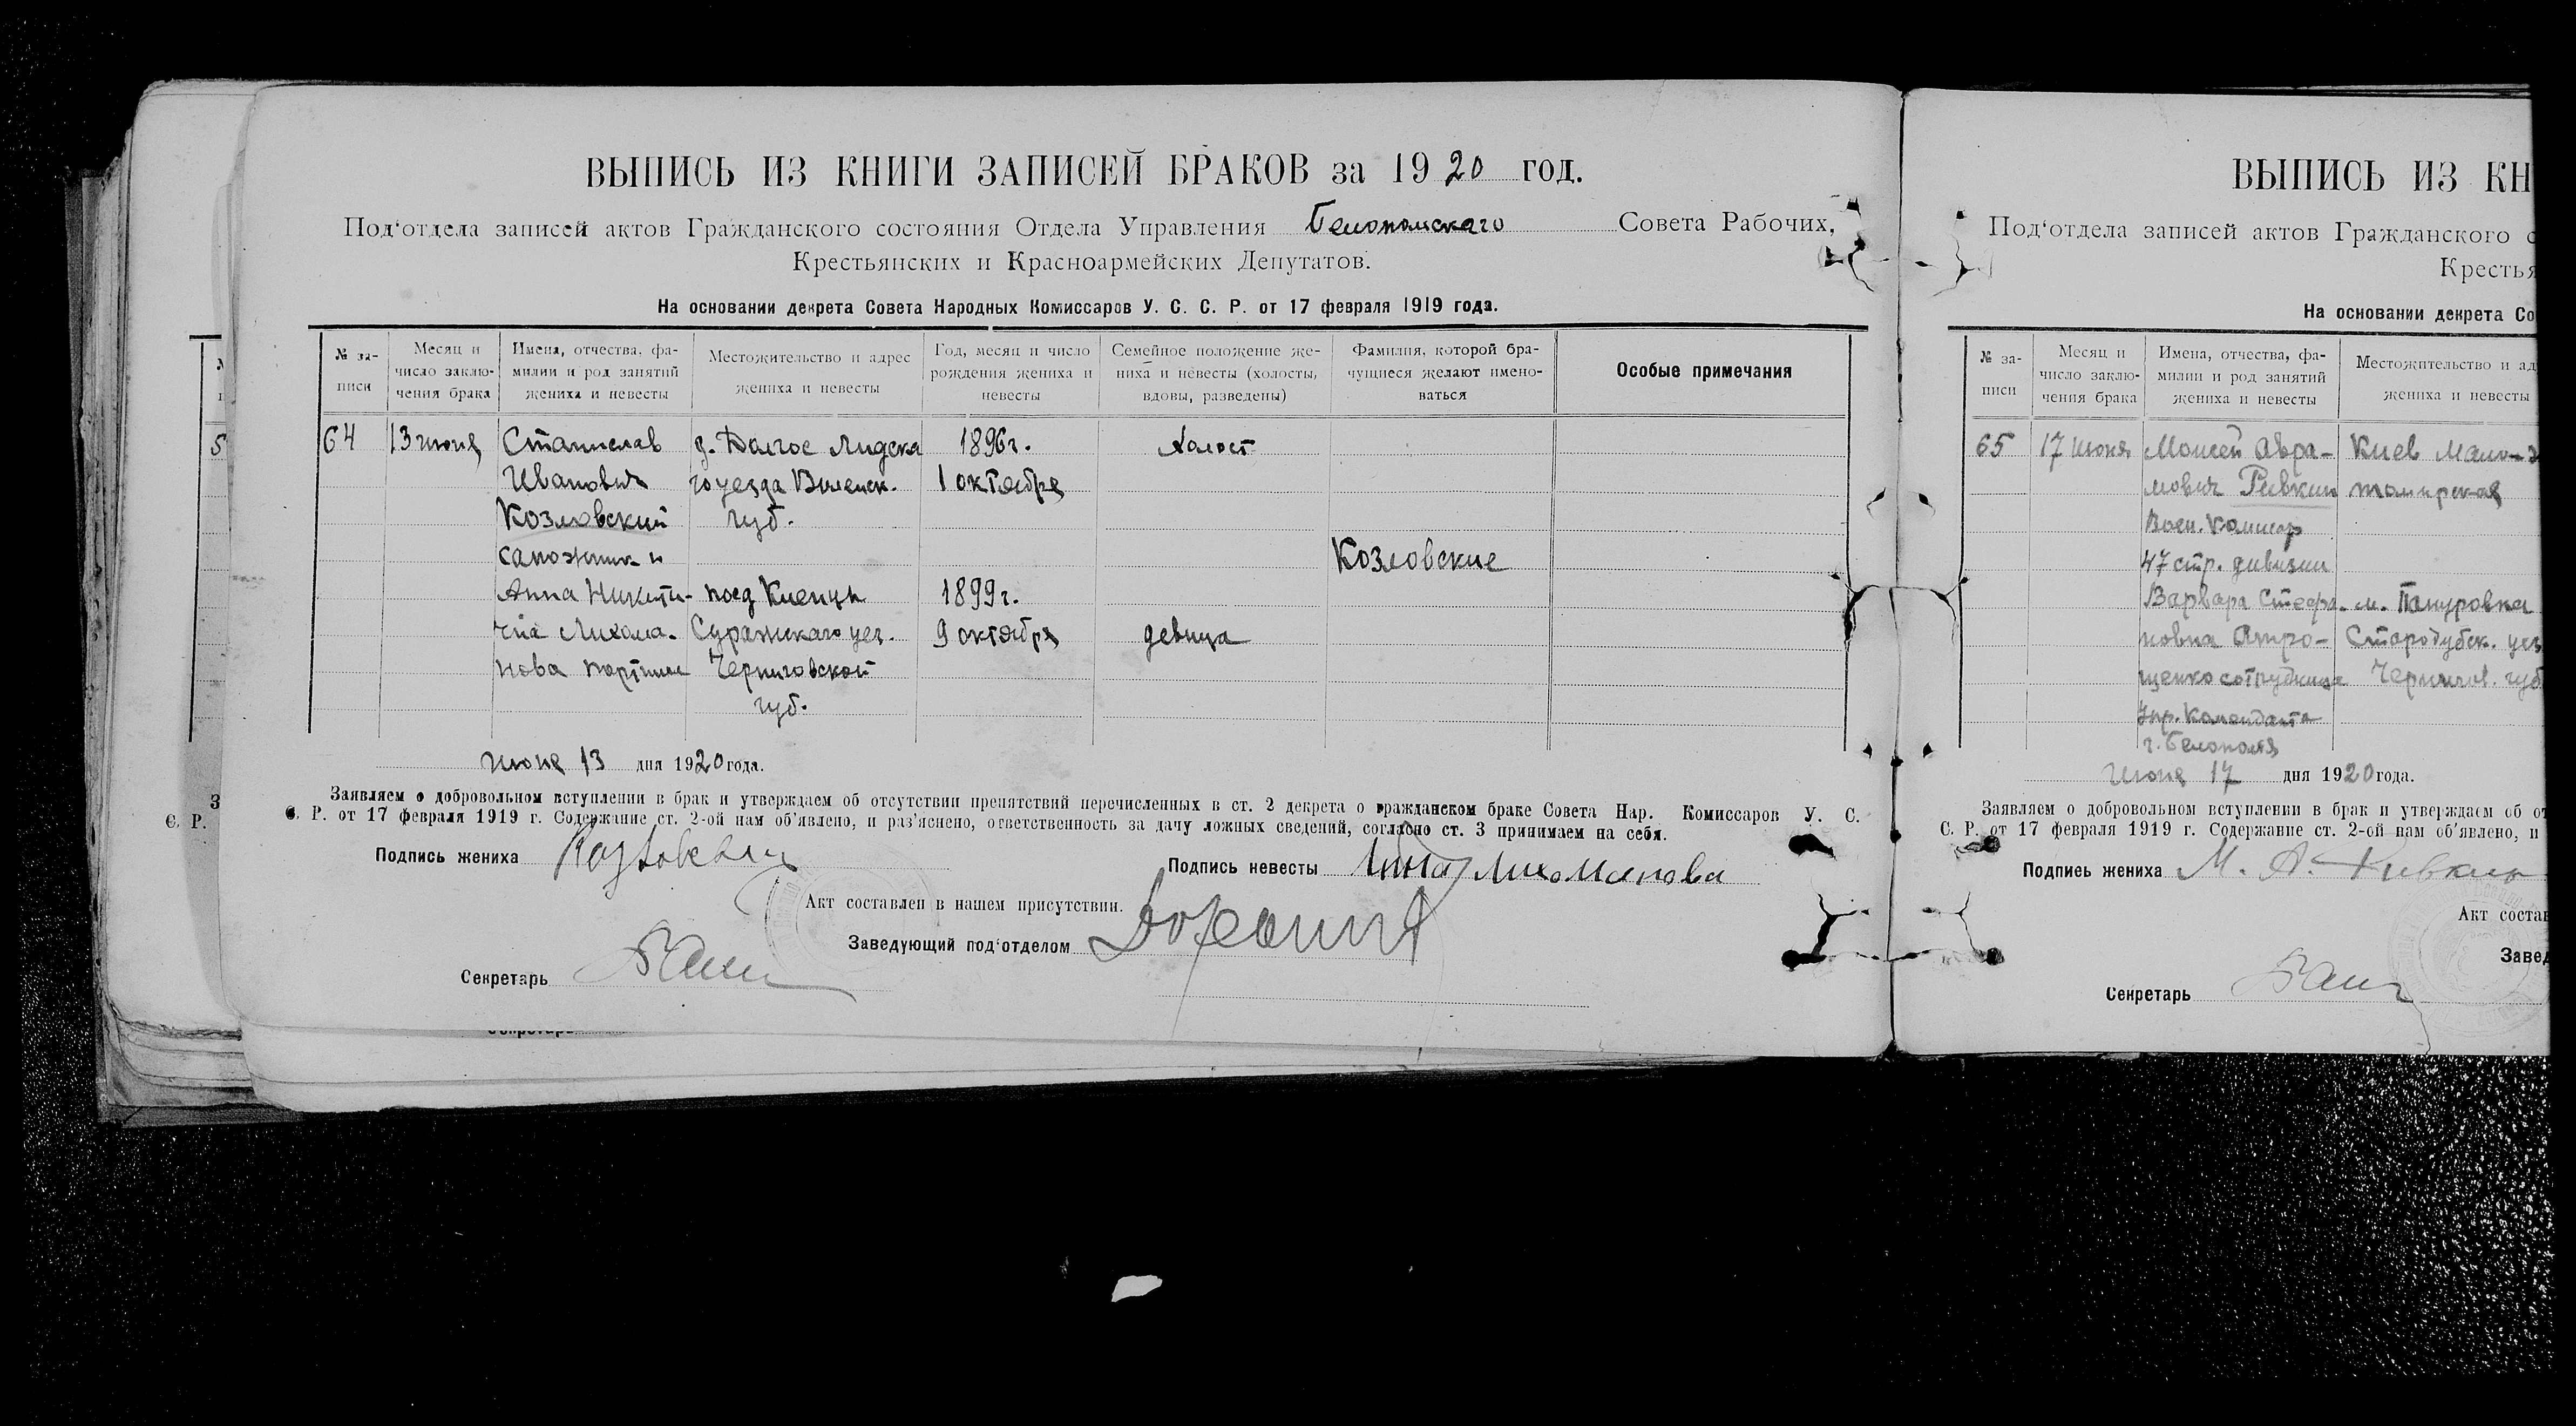 ВЫПИСЬ ИЗ КНИГИ ЗАПИСЕЙ БРАКОВ за 1920 год.
Под‘отдела записей актов Гражданского состояния Отдела Управления Белопольскаго Совета Рабочих,
Крестьянских и Красноармейских Депутатов.
На основании декрета Совета Народных Комиссаров У. С. С. Р. от 17 февраля 1919 года.
№ за-
писи
Месяц и
число заклю-
чения брака
Имена, отчества, фа-
милии и род занятий
жениха и невесты
Местожительство и адрес
жениха и невесты
Год, месяц и число
рождения жениха и
невесты
Семейное положение же-
ниха и невесты (холосты,
вдовы, разведены)
Фамилия, которой бра-
чущиеся желают имено-
ваться
Особые примечания
64 13 июня Станислав д. Долгое Лидска 1896 г. Холост
Иванович го уезда Виленск. 1 октября
Козловский губ.
сапожник и Козловские
Анна Никити- посад 1899 г.
чна Лихома- Суражскаго уез. 9 октября девица
нова портниха Черниговской
губ.
июня 13 дня 1920 года.
Заявляем о добровольном вступлении в брак и утверждаем об отсутствии препятствий перечисленных в ст. 2 декрета о гражданском браке Совета Нар. Комиссаров У. С.
С. Р. от 17 февраля 1919 г. Содержание ст. 2-ой нам об’явлено, и раз’яснено, ответственность за дачу ложных сведений, согласно ст. 3 принимаем на себя.
Подпись жениха Козловский
Подпись невесты Анна Лихоманова
Акт составлен в нашем присутствии.
Заведующий под‘отделом
Секретарь
ВЫПИСЬ ИЗ КН
Под‘отдела записей актов Гражданского с
Крестья
На основании декрета Со
№ за-
писи
Месяц и
число заклю-
чения брака
Имена, отчества, фа-
милии и род занятий
жениха и невесты
Местожительство и ад
жениха и невесты
65 17 июня Моисей Авра- Киев Мало-
мович Ривкин
Воен. Комисар
47 стр. дивизии
Варвара Стефа- м. Пануровка
новна Стародубск. уез.
сотрудница Чернигов. губ
Упр. Коменданта
г. Белополя
Июня 17 дня 1920 года.
Заявляем о добровольном вступлении в брак и утверждаем об от
С. Р. от 17 февраля 1919 г. Содержание ст. 2-ой нам об’явлено, и
Подпись жениха М. А. Ривкин
Акт состав
Завед
Секретарь